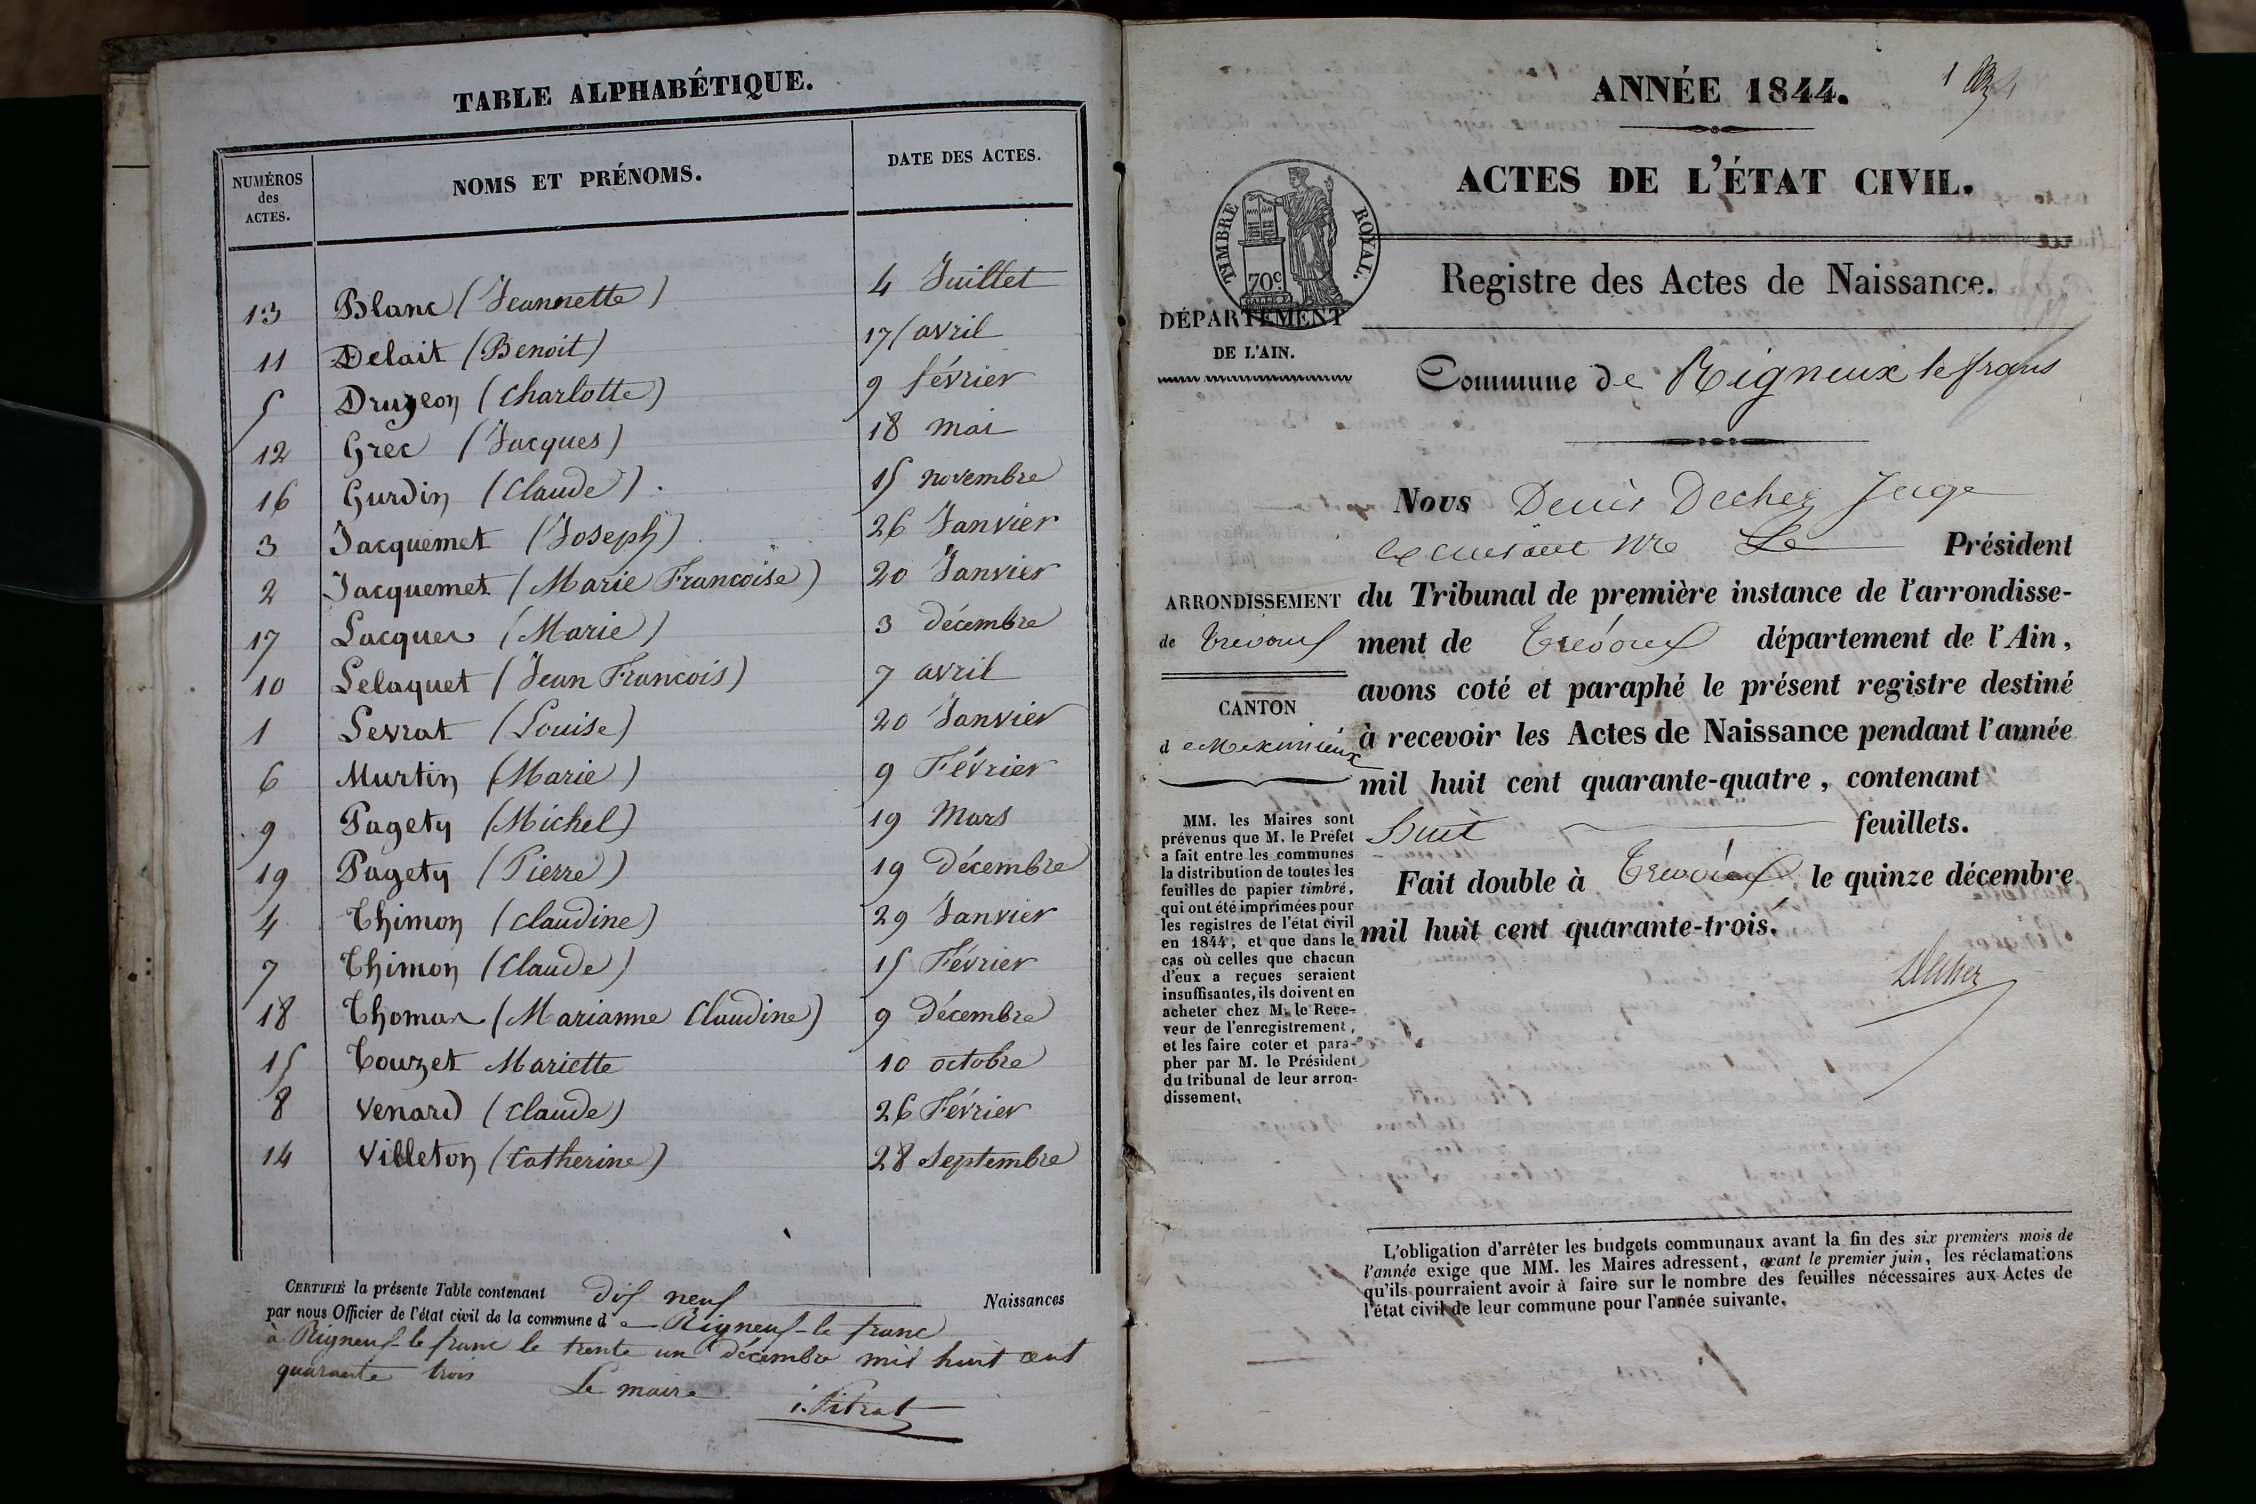 TABLE ALPHABÉTIQUE.
NUMÉROS des ACTES. NOMS ET PRÉNOMS. DATE DES ACTES.
13 Blanc (Jeannette) 4 Juillet
11 Delait (Benoit) 17 avril
5 Druyeon (Charlotte) 9 février
12 Grec (Jacques) 18 mai
16 Gurdin (Claude). 15 novembre
3 Jacquemet (Joseph) 26 Janvier
2 Jacquemet (Marie Francoise) 20 Janvier
17 Lacques (Marie) 3 décembre
10 Lelaquet (Jean Francois) 7 avril
1 Levrat (Louise) 20 Janvier
6 Murtin (Marie) 9 Février
9 Pagety (Michel) 19 Mars
19 Pagety (Pierre) 19 Décembre
4 Thimon (Claudine) 29 Janvier
7 Thimon (Claude) 15 Février
18 Thomas (Marianne Claudine) 9 Décembre
15 Touzet Mariette 10 octobre
8 Venard (Claude) 26 Février
14 Villeton (Catherine) 28 Septembre
CERTIFIÉ la présente Table contenant dix neuf Naissances
par nous Officier de l'état civil de la commune de Rigneux-le franc
à Rigneux-le franc le trente un décembre mil huit cent
quarante trois
Le maire
Pitrat
ANNÉE 1844.
1
ACTES DE L'ÉTAT CIVIL.
TIMBRE ROYAL.
70c
Registre des Actes de Naissance.
DÉPARTEMENT
DE L'AIN.
Commune de Rigneux le franc
Nous Denis Decher Juge
Le Président
ARRONDISSEMENT
de Trevoux
CANTON
de Meximieux
du Tribunal de première instance de l'arrondisse-
ment de Trévoux département de l'Ain,
avons coté et paraphé le présent registre destiné
à recevoir les Actes de Naissance pendant l'année
mil huit cent quarante-quatre, contenant
huit feuillets.
Fait double à Trévoux le quinze décembre
mil huit cent quarante-trois.
Decher
MM. les Maires sont
prévenus que M. le Préfet
a fait entre les communes
la distribution de toutes les
feuilles de papier timbré,
qui ont été imprimées pour
les registres de l'état civil
en 1844, et que dans le
cas où celles que chacun
d'eux a reçues seraient
insuffisantes, ils doivent en
acheter chez M. le Rece-
veur de l'enregistrement,
et les faire coter et para-
pher par M. le Président
du tribunal de leur arron-
dissement.
L'obligation d'arrêter les budgets communaux avant la fin des six premiers mois de
l'année exige que MM. les Maires adressent, avant le premier juin, les réclamations
qu'ils pourraient avoir à faire sur le nombre des feuilles nécessaires aux Actes de
l'état civil de leur commune pour l'année suivante.